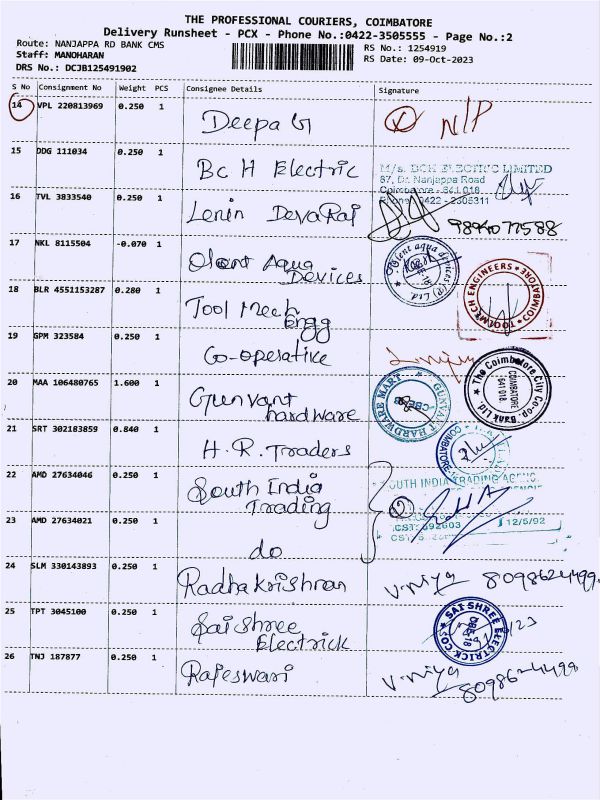 THE PROFESSIONAL COURIERS, COIMBATORE
Delivery Runsheet - PCX - Phone No.:0422-3505555 - Page No.:2
Route: NANJAPPA RD BANK CMS
RS No.: 1254919
Staff: MANOHARAN
RS Date: 09-Oct-2023
DRS No.: DCJB125491902
S No Consignment No Weight PCS Consignee Details Signature
14 VPL 220813969 0.250 1 Deepa G N/P
15 DDG 111034 0.250 1 BC H Electric
M/s. BCH ELECTRIC LIMITED
87, Dr. Nanjappa Road
Coimbatore - 641 018.
Phone: 0422 - 2305311
16 TVL 3833540 0.250 1 Lenin DevaRaj
17 NKL 8115504 -0.070 1 Olent Aqua
Devices
Olent aqua devices (P) Ltd.
18 BLR 4551153287 0.280 1 Tool Mech
Engg
TOOLMECH ENGINEERS COIMBATORE
19 GPM 323584 0.250 1 Co-operative
The Coimbatore City Co-op. Bank Ltd.
COIMBATORE
641 018.
20 MAA 106480765 1.600 1 Gunvant
hardware
GUNVANT HARDWARE MART
21 SRT 302183859 0.840 1 H.R. Traders
COIMBATORE
22 AMD 27634046 0.250 1 South India
Trading
SOUTH INDIA TRADING AGENC
23 AMD 27634021 0.250 1 do
2
CST: 692603 12/5/92
24 SLM 330143893 0.250 1 Radhakrishnan V.niya 8098624499
25 TPT 3045100 0.250 1 Sai Shree
Electrick
SAI SHREE ELECTRICK CO
26 TNJ 187877 0.250 1 Rajeswari V.niya
8098624499